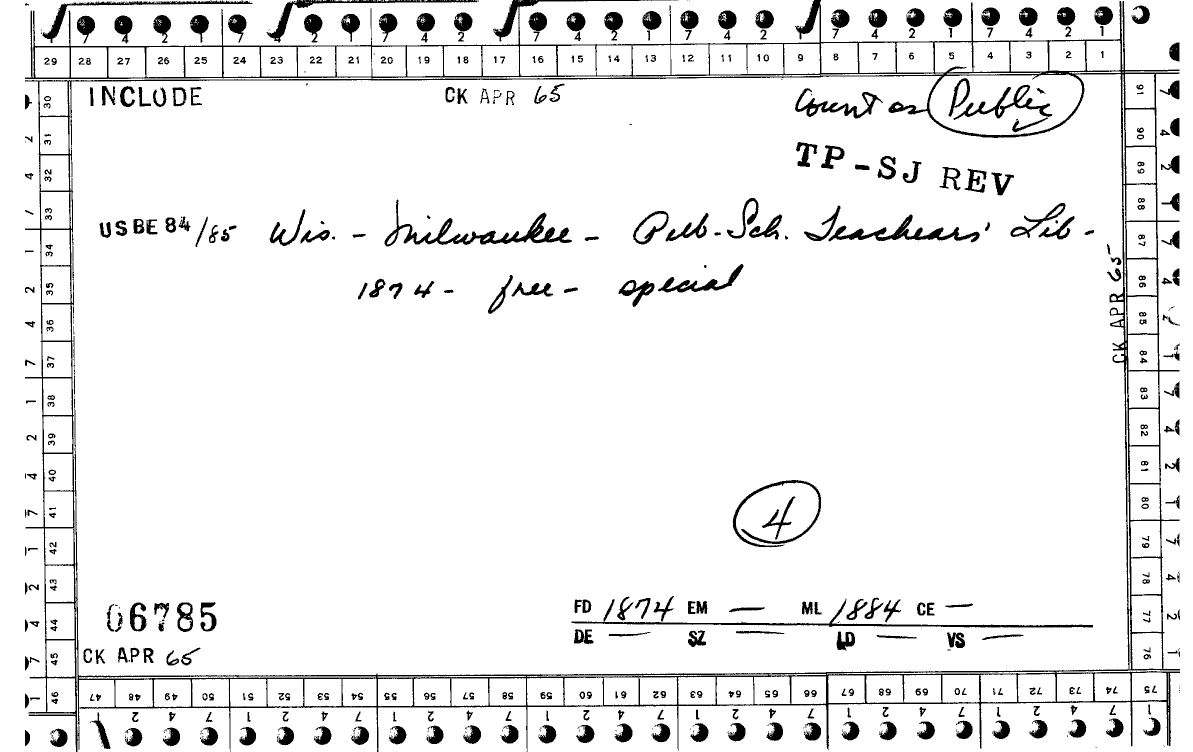 7 4 2 1 7 4 2 1 7 4 2 1 7 4 2 1
29 28 27 26 25 24 23 22 21 20 19 18 17 16 15 14 13 12 11 10 9 8 7 6 5 4 3 2 1
INCLUDE CK APR 65 Count as Public
TP-SJ REV
USBE 84/85 Wis. - Milwaukee - Pub. Sch. Teachears' Lib -
1874 - free - special
CK APR 65
4
06785
FD 1874 EM — ML 1884 CE —
DE — SZ — LD — VS —
CK APR 65
30 31 32 33 34 35 36 37 38 39 40 41 42 43 44 45 46
91 90 89 88 87 86 85 84 83 82 81 80 79 78 77 76
47 48 49 50 51 52 53 54 55 56 57 58 59 60 61 62 63 64 65 66 67 68 69 70 71 72 73 74 75